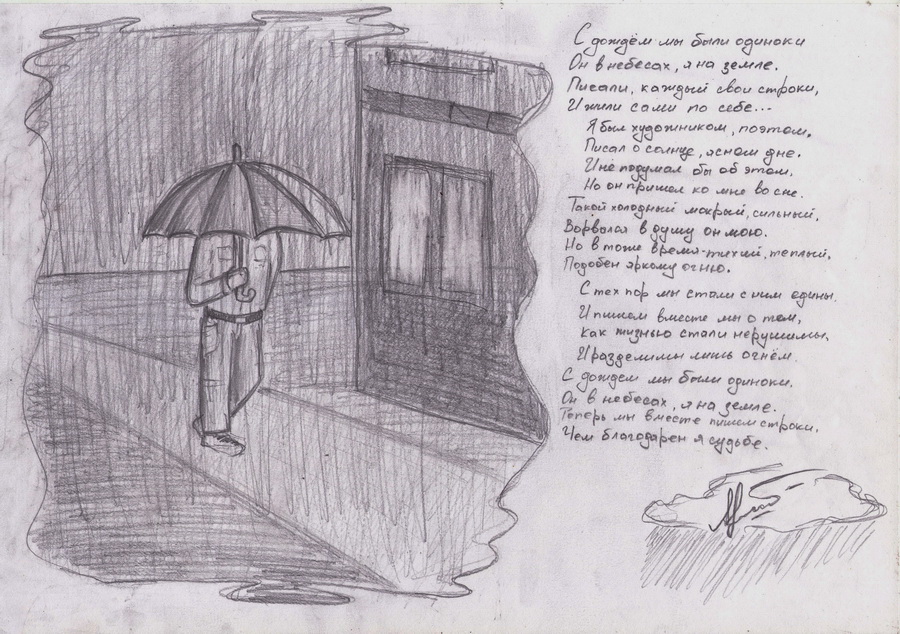 С дождём мы были одиноки
Он в небесах, я на земле.
Писали, каждый свои строки,
И жили сами по себе...
Я был художником, поэтом,
Писал о солнце, ясном дне.
И не подумал бы об этом,
Но он пришел ко мне во сне.
Такой холодный мокрый, сильный,
Ворвался в душу он мою.
Но в тоже время-тихий, теплый,
Подобен яркому огню.
С тех пор мы стали с ним едины.
И пишем вместе мы о том,
Как жизнью стали нерушимы,
И разделимы лишь огнём.
С дождем мы были одиноки.
Он в небесах, я на земле.
Теперь мы вместе пишем строки,
Чем благодарен я судьбе.